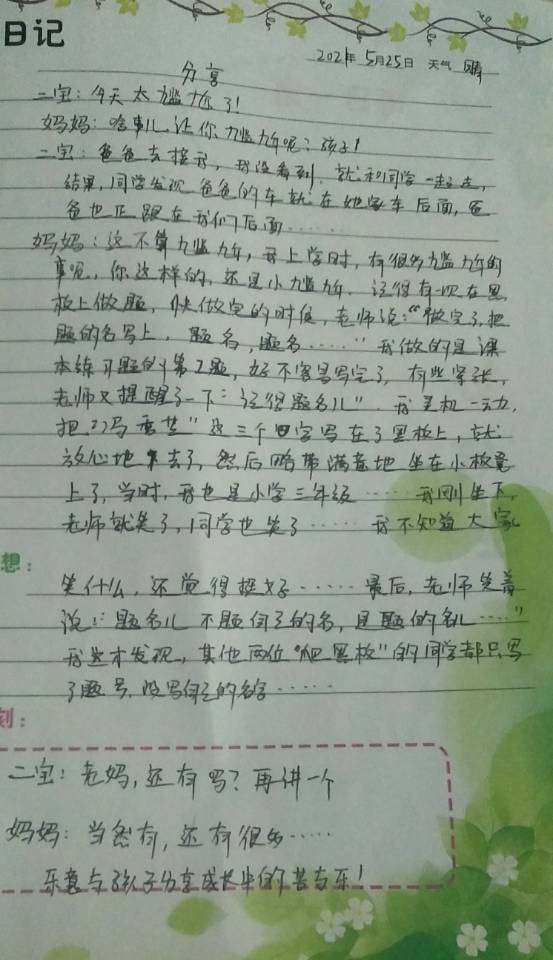 日记
2021年 5月25日 天气 晴
分享
二宝：今天太尴尬了！
妈妈：啥事儿让你尴尬呢？孩子！
二宝：爸爸去接我，我没看到，就和同学一起走，
结果，同学发现爸爸的车就在她家车后面，爸
爸也正跟在我们后面……
妈妈：这不算尴尬，我上学时，有很多尴尬的
事呢，你这样的，还是小尴尬，记得有一次在黑
板上做题，快做完的时候，老师说：“做完了，把
题的名写上，题名，题名……”我做的是课
本练习题的第2题，好不容易写完了，有些紧张，
老师又提醒了一下：“记得题名儿”，我灵机一动，
把“冯 这三个字写在了黑板上，就
放心地下去了，然后略带满意地坐在小板凳
上了，当时，我也是小学三年级……我刚坐下，
老师就笑了，同学也笑了……我不知道大家
想：
笑什么，还觉得挺好……最后，老师笑着
说：“题名儿不题自己的名，是题的名儿……”
我这才发现，其他两位“爬黑板”的同学都只写
了题号，没写自己的名字……
刻：
二宝：老妈，还有吗？再讲一个
妈妈：当然有，还有很多……
乐意与孩子分享成长中的苦与乐！